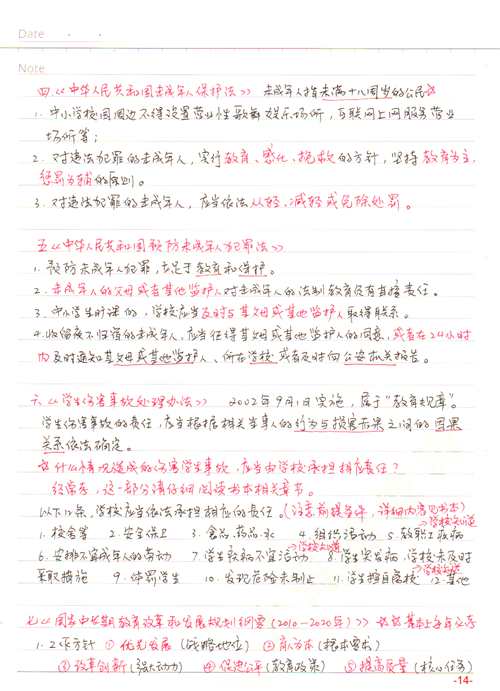 Date · ·
Note
四、《中华人民共和国未成年人保护法》 未成年人指未满十八周岁的公民☆
1. 中小学校园周边不得设置营业性歌舞娱乐场所，互联网上网服务营业
场所等；
2. 对违法犯罪的未成年人，实行教育、感化、挽救的方针，坚持教育为主，
惩罚为辅的原则。
3. 对违法犯罪的未成年人，应当依法从轻、减轻或免除处罚。
五、《中华人民共和国预防未成年人犯罪法》
1. 预防未成年人犯罪，立足于教育和保护。
2. 未成年人的父母或者其他监护人对未成年人的法制教育负有直接责任。
3. 中小学生旷课的，学校应当及时与其父母或其他监护人取得联系。
4. 收留夜不归宿的未成年人，应当征得其父母或其他监护人的同意，或者在24小时
内及时通知其父母或其他监护人、所在学校或者及时向公安机关报告。
六、《学生伤害事故处理办法》 2002年9月1日实施，属于“教育规章”。
学生伤害事故的责任，应当根据相关当事人的行为与损害后果之间的因果
关系依法确定。
☆什么情况造成的伤害学生事故，应当由学校承担相应责任？
经常考，这一部分请仔细阅读书本相关章节。
以下12条，学校应当依法承担相应的责任。（注意前提条件，详细内容见书本）
1. 校舍等 2. 安全保卫 3. 食品、药品、水 4. 组织活动 5. 教职工疾病 学校知道
6. 安排不宜未成年人的劳动 7. 学生疾病不宜活动 学校知道 8. 学生突发病，学校未及时
采取措施 9. 体罚学生 10. 发现危险未制止 11. 学生擅自离校 学校知道 12. 其他
七、《国家中长期教育改革和发展规划纲要（2010-2020年）》 ☆☆基本上每年必考
1. 工作方针 ①优先发展（战略地位） ②育人为本（根本要求）
③改革创新（强大动力） ④促进公平（教育政策） ⑤提高质量（核心任务）
-14-